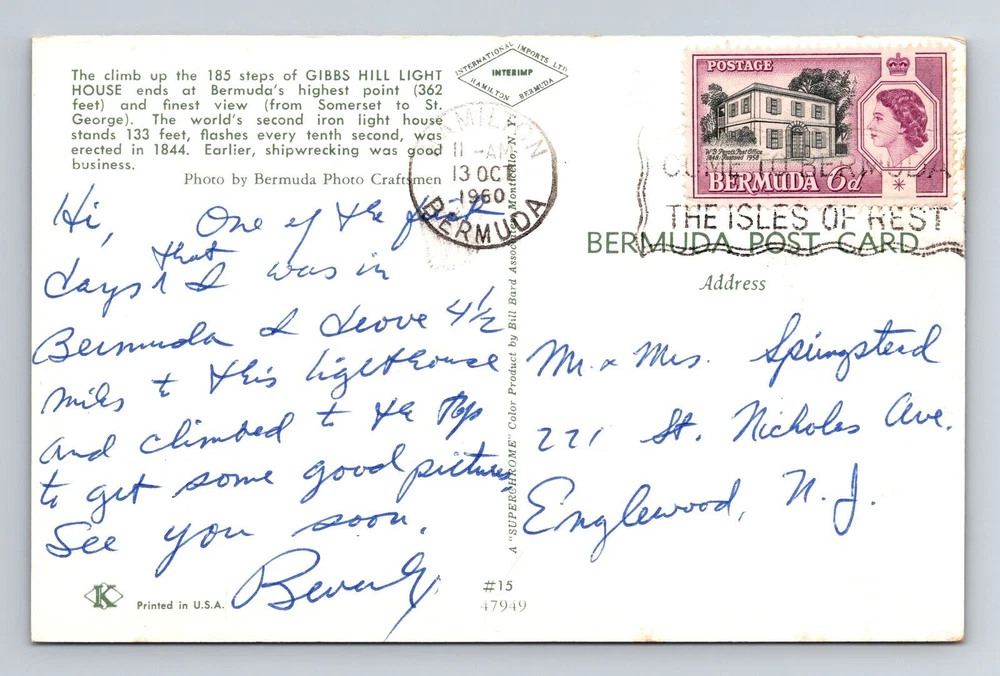 The climb up the 185 steps of GIBBS HILL LIGHT
HOUSE ends at Bermuda's highest point (362
feet) and finest view (from Somerset to St.
George). The world's second iron light house
stands 133 feet, flashes every tenth second, was
erected in 1844. Earlier, shipwrecking was good
business.
Photo by Bermuda Photo Craftsmen
INTERNATIONAL IMPORTS LTD
INTERIMP
HAMILTON BERMUDA
HAMILTON
11 - AM
13 OCT
1960
BERMUDA
POSTAGE
W.B. Perot's Post Office
1848 Restored 1958
BERMUDA 6d
COME TO BERMUDA
THE ISLES OF REST
BERMUDA POST CARD
Address
Hi, One of the first
days that I was in
Bermuda I drove 4½
miles to this lighthouse
and climbed to the top
to get some good pictures
See you soon.
Beverly
Mr. & Mrs. Springstead
221 St. Nicholas Ave.
Englewood, N. J.
A "SUPERCHROME" Color Product by Bill Bard Associates, Monticello, N. Y.
K
Printed in U.S.A.
#15
47949